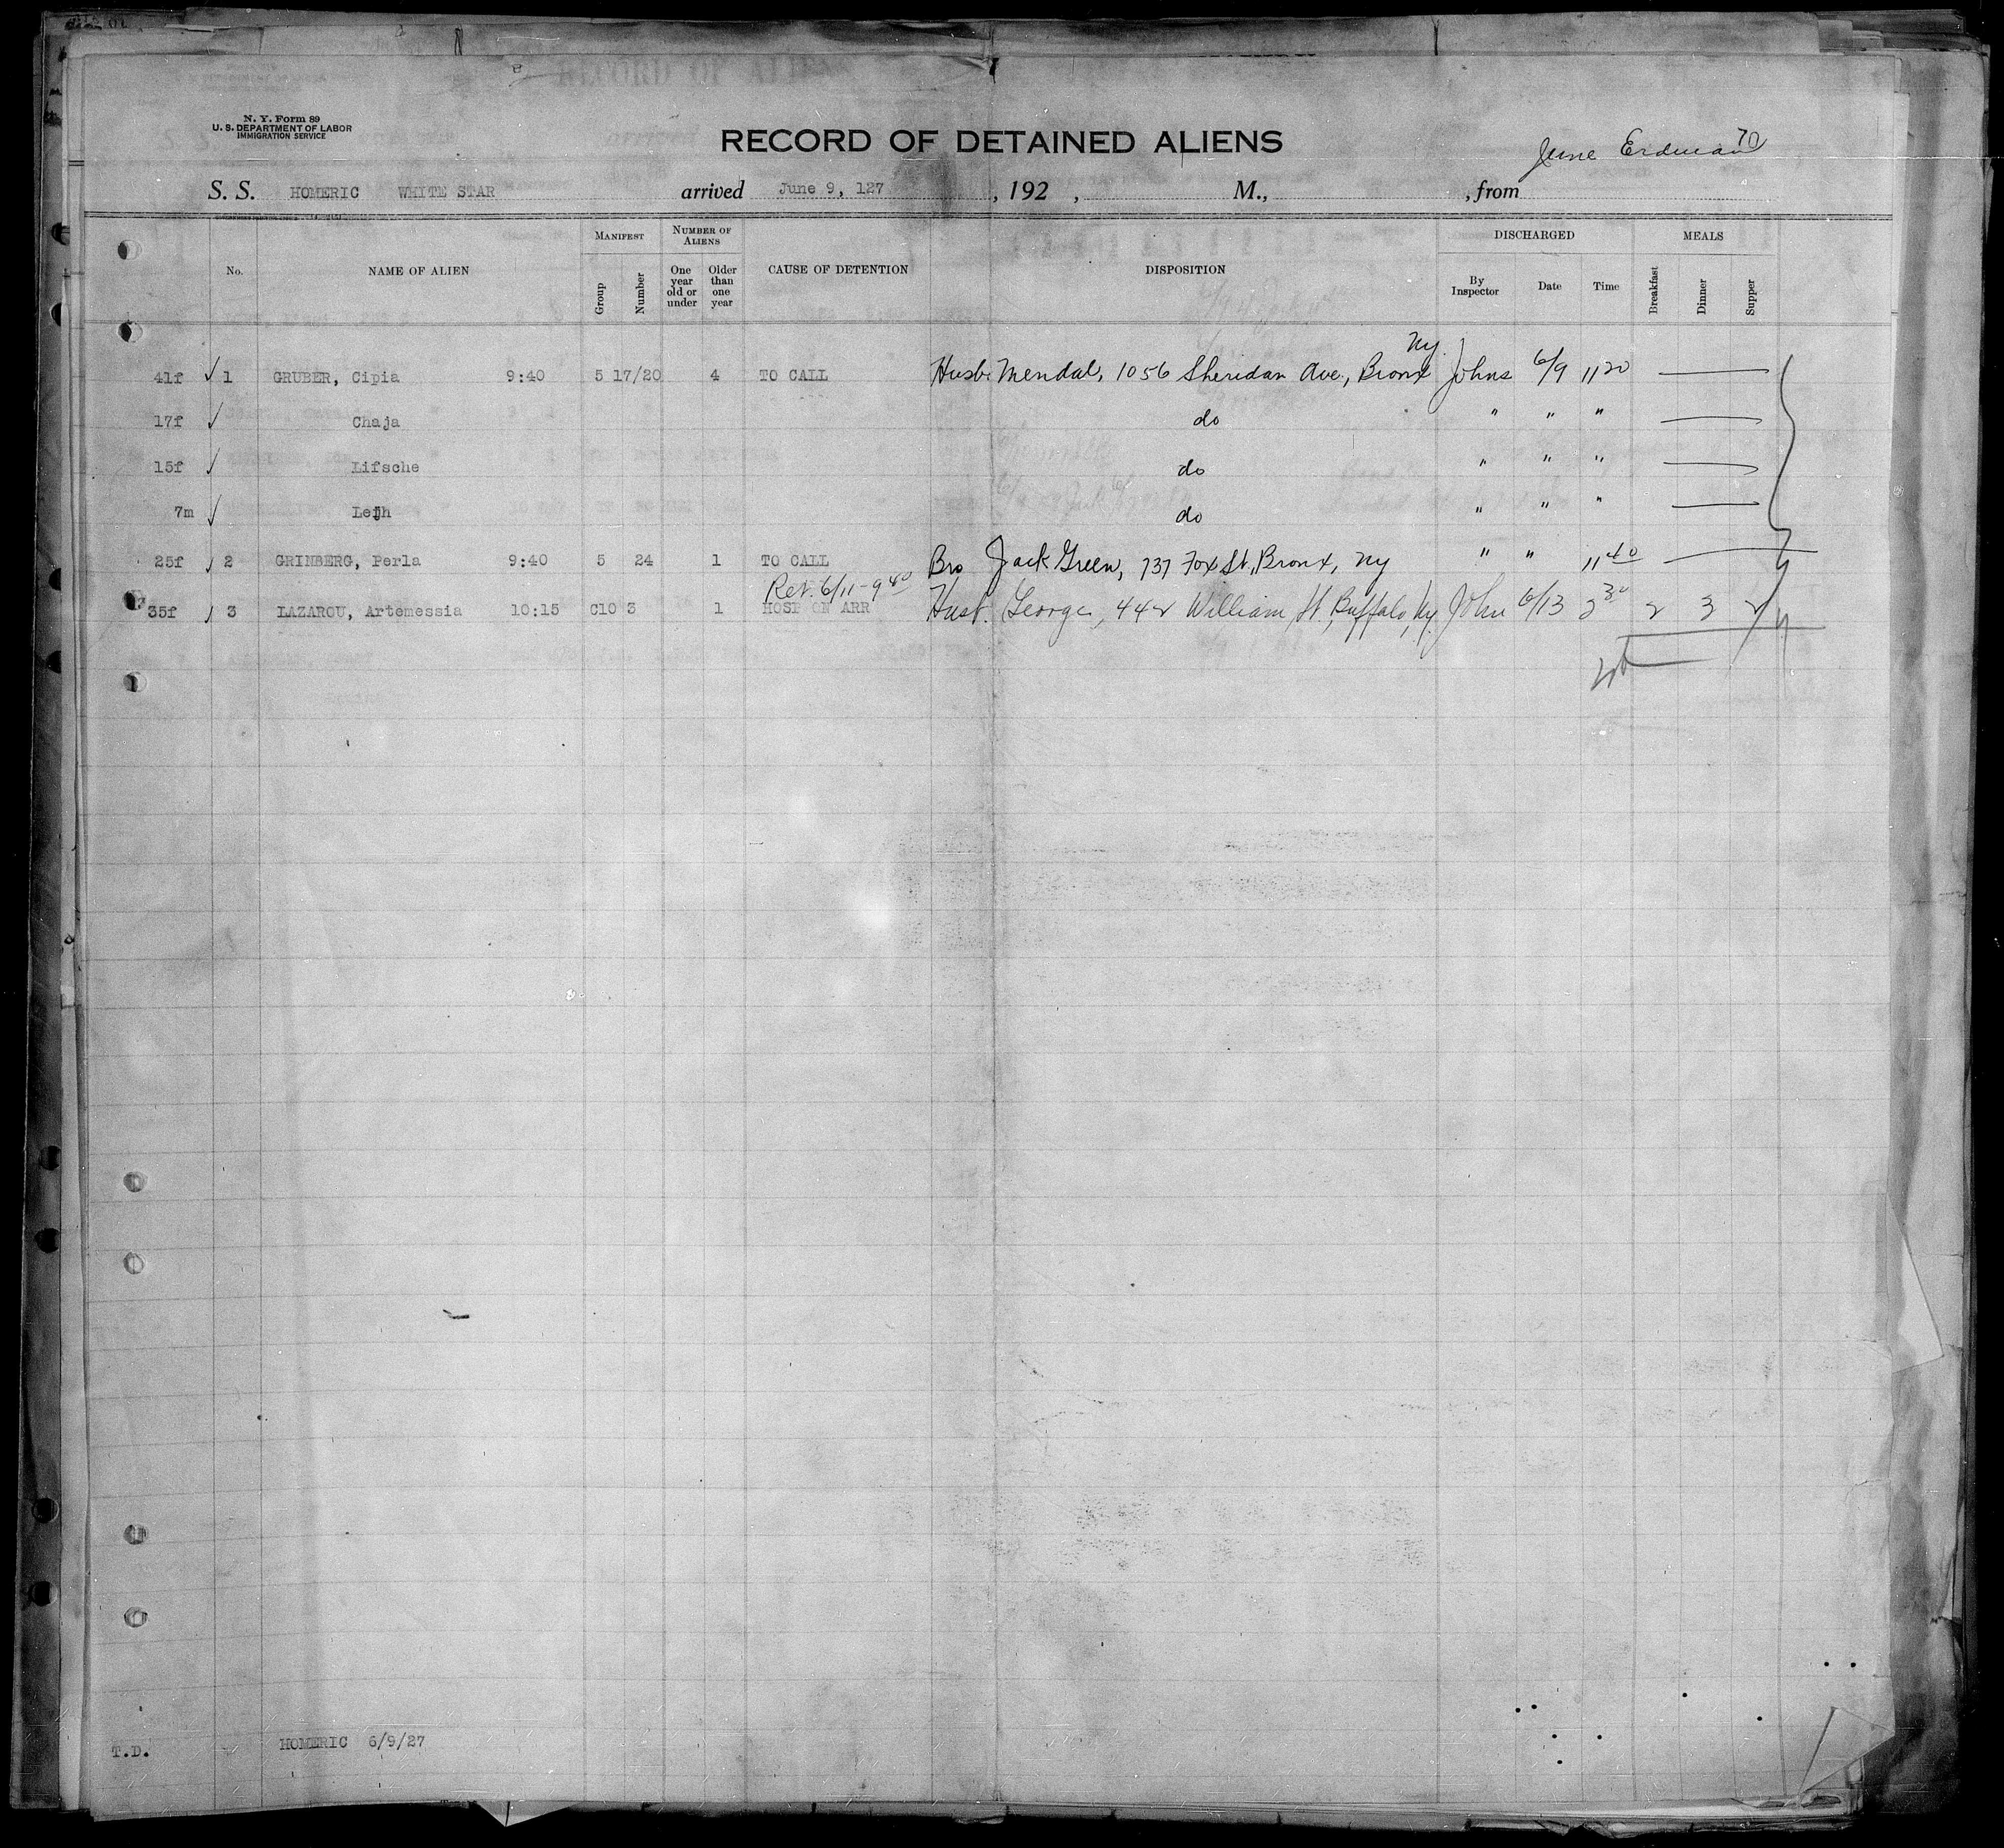 N. Y. Form 89
U. S. DEPARTMENT OF LABOR
IMMIGRATION SERVICE
RECORD OF DETAINED ALIENS
June Erdman 70
S. S. HOMERIC WHITE STAR arrived June 9, 127, 192 , M., , from
No. NAME OF ALIEN MANIFEST Group Number NUMBER OF ALIENS One year old or under Older than one year CAUSE OF DETENTION DISPOSITION DISCHARGED By Inspector Date Time MEALS Breakfast Dinner Supper
41f ✓ 1 GRUBER, Cipia 9:40 5 17/20 4 TO CALL Husb. Mendal, 1056 Sheridan Ave., Bronx Ny. Johns 6/9 11 20 —
17f ✓ Chaja do " " " —
15f ✓ Lifsche do " " " —
7m ✓ Lejh do " " " —
25f ✓ 2 GRINBERG, Perla 9:40 5 24 1 TO CALL Bro Jack Green, 737 Fox St., Bronx, Ny " " 11 40 —
Ret. 6/11-9 40
35f ✓ 3 LAZAROU, Artemessia 10:15 C10 3 1 HOSP ON ARR Husb. George, 442 William St., Buffalo, Ny. John 6/13 2 30 2 3 2
T.D. HOMERIC 6/9/27